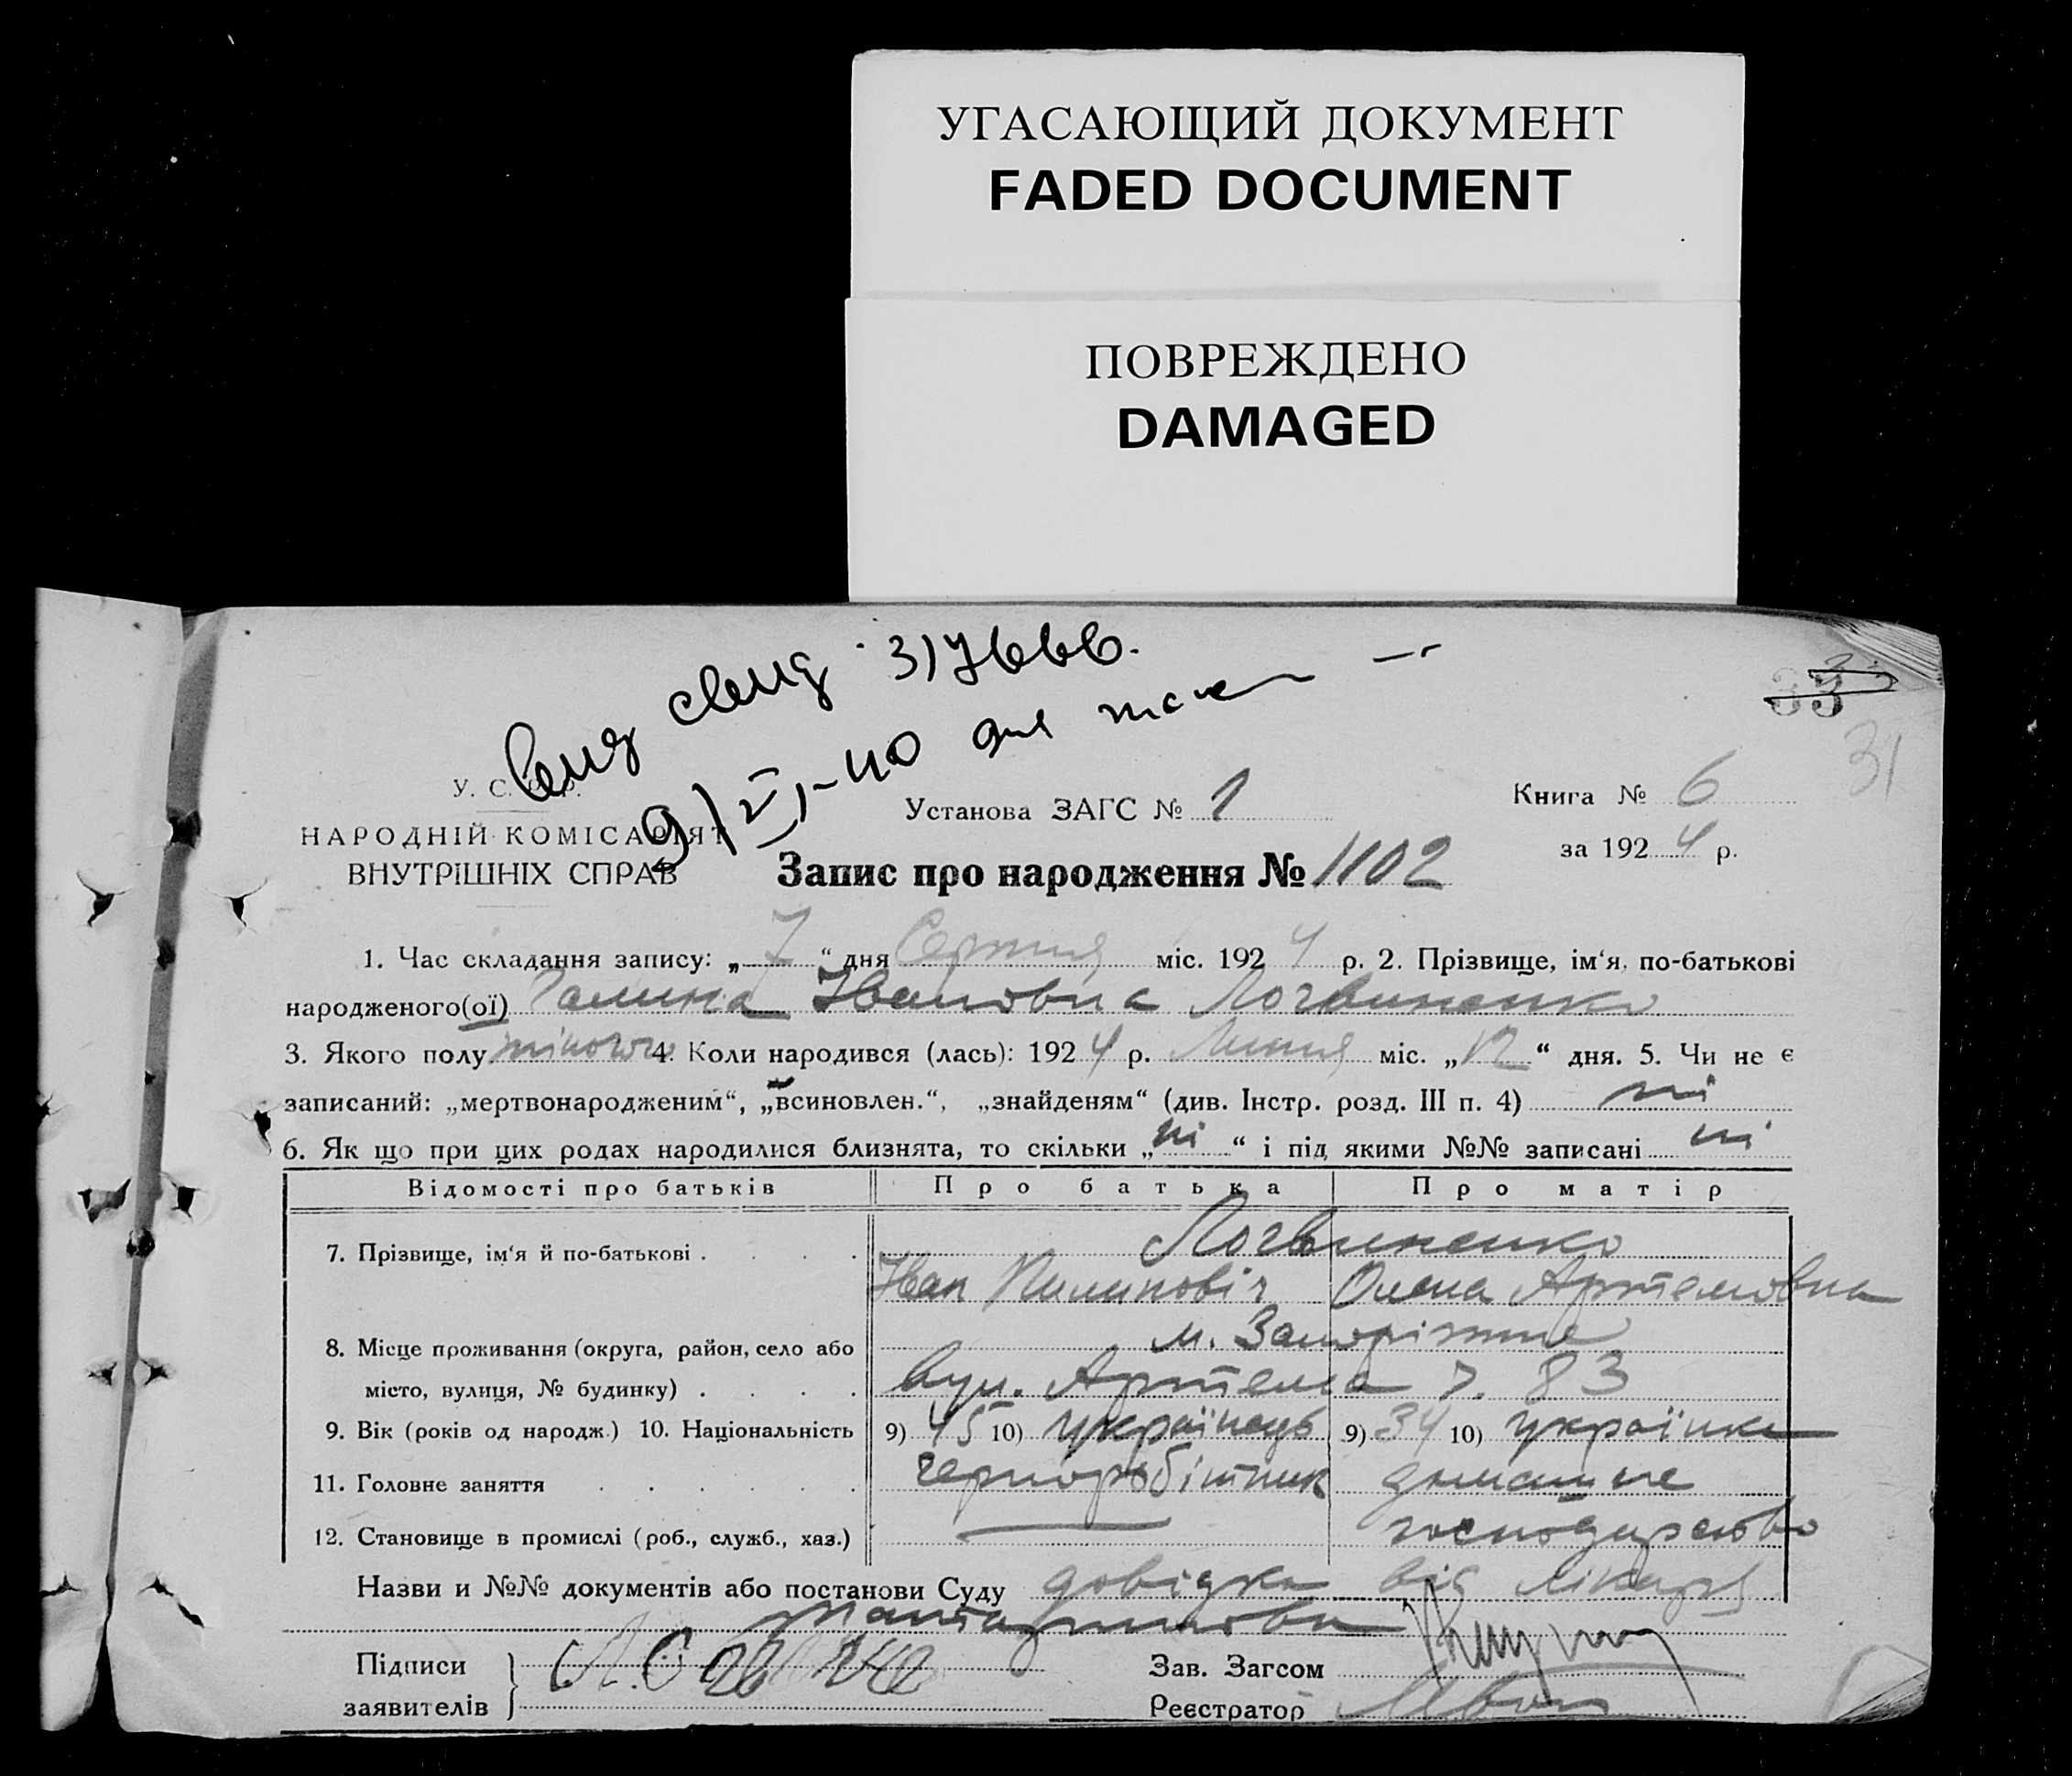 УГАСАЮЩИЙ ДОКУМЕНТ
FADED DOCUMENT
ПОВРЕЖДЕНО
DAMAGED
33
31
У. С. Р. Р.
НАРОДНІЙ КОМІСАРІЯТ
ВНУТРІШНІХ СПРАВ
Установа ЗАГС № 1
Книга № 6
за 1924 р.
Запис про народження № 1102
1. Час складання запису: „7“ дня Серпня міс. 1924 р. 2. Прізвище, ім‘я, по-батькові
народженого(ої) Галина Івановна Логвиненко
3. Якого полу жіночого 4. Коли народився (лась): 1924 р. Липня міс. „12“ дня. 5. Чи не є
записаний: „мертвонародженим“, „всиновлен.“, „знайденям“ (див. Інстр. розд. III п. 4) ні
6. Як що при цих родах народилися близнята, то скільки „ні“ і під якими №№ записані ні
Відомості про батьків Про батька Про матір
7. Прізвище, ім‘я й по-батькові . . . . Логвиненко
Іван Пилипович Олена Артемовна
8. Місце проживання (округа, район, село або м. Запоріжжє
місто, вулиця, № будинку) . . . . вул. Артема ч. 83
9. Вік (років од народж.) 10. Національність 9) 45 10) українець 9) 34 10) українка
11. Головне заняття . . . . . . чорноробітник домашнє
12. Становище в промислі (роб., служб., хаз.) — господарство
Назви и №№ документів або постанови Суду довідка від лікаря
Підписи
заявителів
Зав. Загсом
Реєстратор